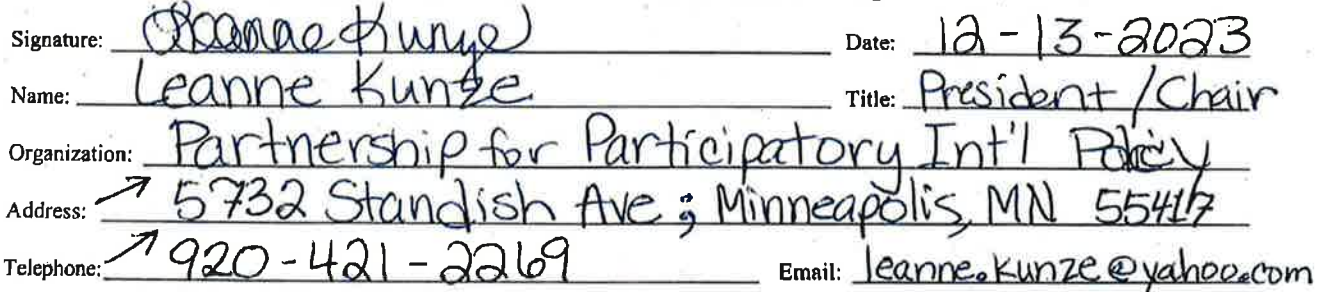 Signature: Leanne Kunze Date: 12-13-2023
Name: Leanne Kunze Title: President / Chair
Organization: Partnership for Participatory Int'l Policy
Address: 5732 Standish Ave; Minneapolis, MN 55417
Telephone: 920-421-2269 Email: leanne.kunze@yahoo.com